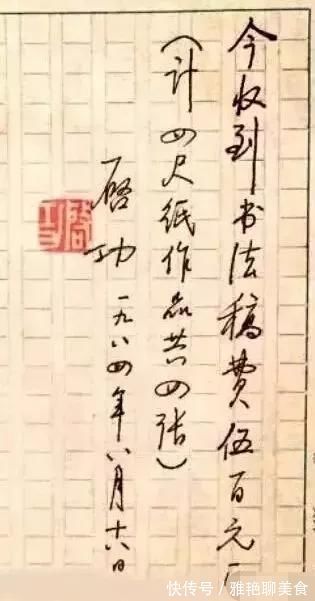 今收到书法稿费伍百元
（计四尺紙作品共四张）
启功 一九八四年八月十六日
快传号 / 雅艳聊美食